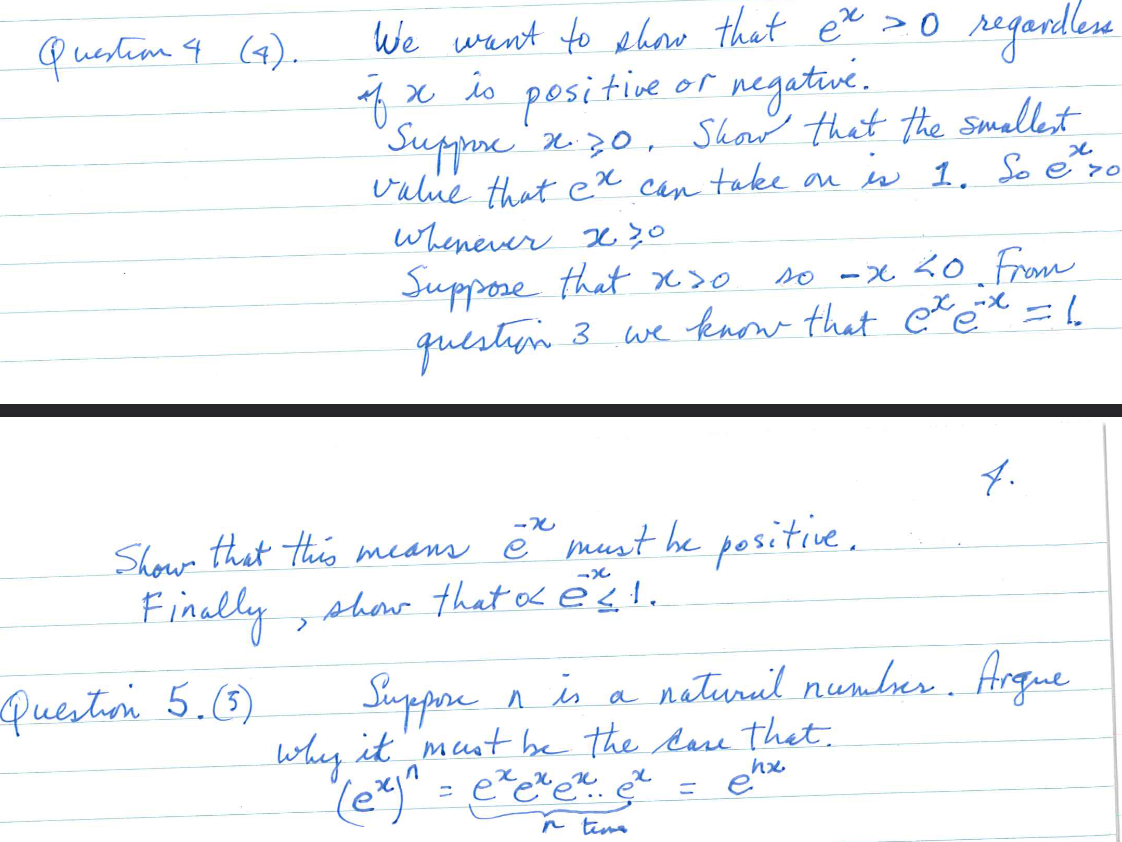 Question 4 (4). We want to show that e^x > 0 regardless
if x is positive or negative.
Suppose x ≥ 0. Show that the smallest
value that e^x can take on is 1. So e^x > 0
whenever x ≥ 0
Suppose that x > 0 so -x < 0. From
question 3 we know that e^x e^-x = 1.
4.
Show that this means e^-x must be positive.
Finally, show that 0 < e^-x ≤ 1.
Question 5. (5) Suppose n is a natural number. Argue
why it must be the case that.
(e^x)^n = e^x e^x e^x .. e^x = e^nx
n times